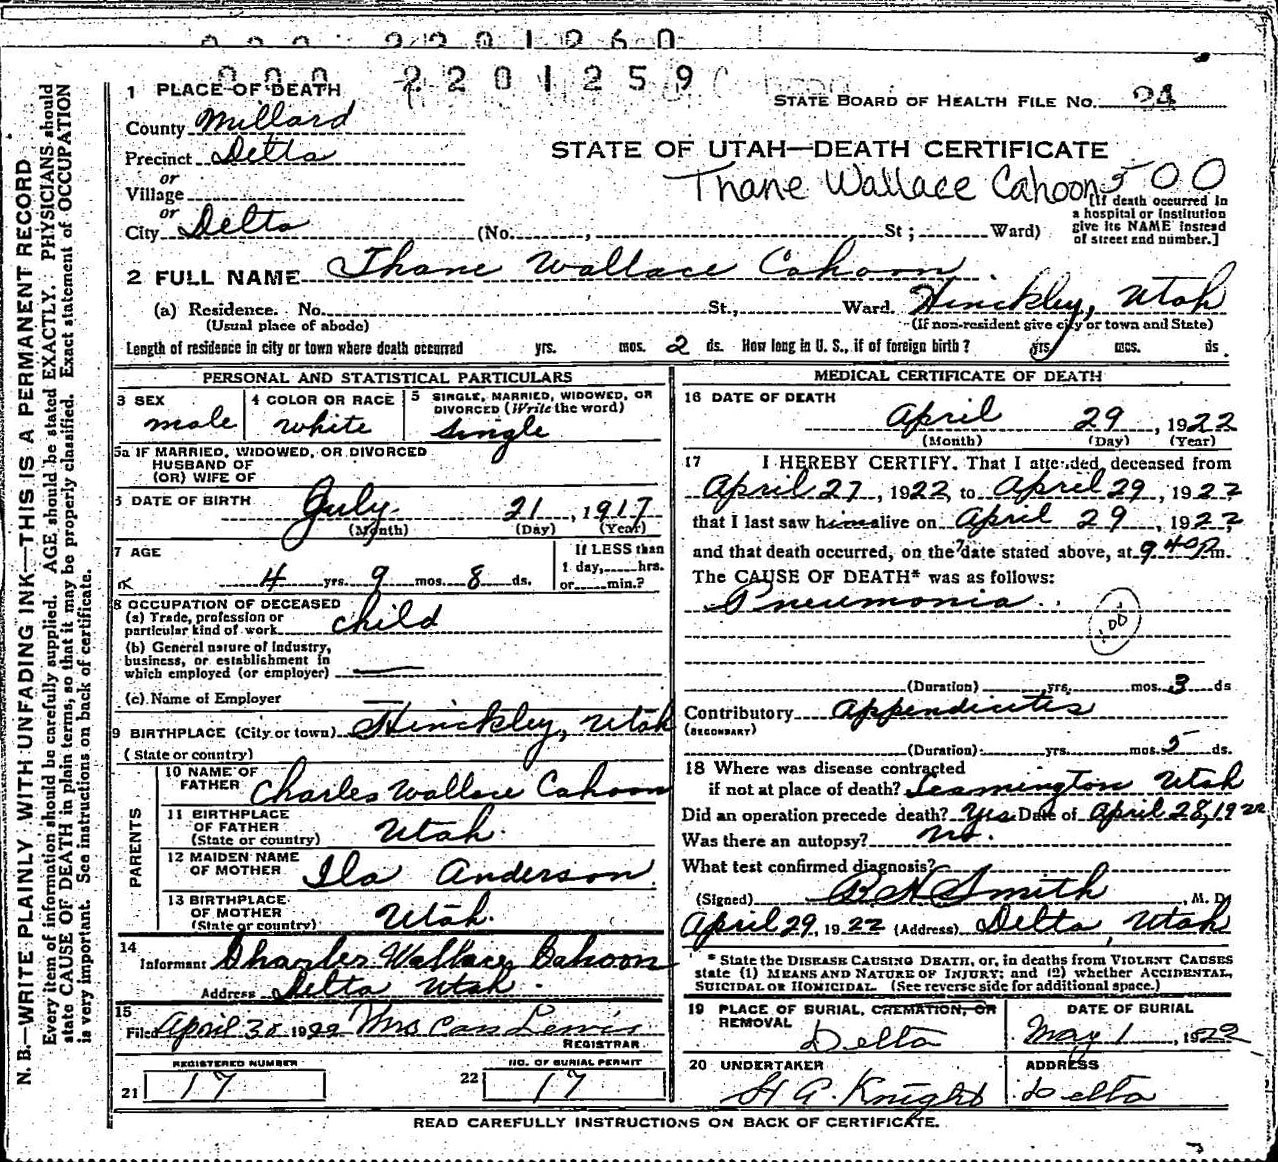 000 2201260
000 2201259
1 PLACE OF DEATH
STATE BOARD OF HEALTH FILE NO. 24
County Millard
Precinct Delta
STATE OF UTAH—DEATH CERTIFICATE
or
Village
Thane Wallace Cahoon 500
or
City Delta (No. , St ; Ward)
[If death occurred in
a hospital or institution
give its NAME instead
of street and number.]
2 FULL NAME Thane Wallace Cahoon
(a) Residence. No. St., Ward. Hinckley, Utah
(Usual place of abode) (If non-resident give city or town and State)
Length of residence in city or town where death occurred yrs. mos. 2 ds. How long in U. S., if of foreign birth? yrs. mos. ds.
PERSONAL AND STATISTICAL PARTICULARS
3 SEX
male
4 COLOR OR RACE
white
5 SINGLE, MARRIED, WIDOWED, OR
DIVORCED (Write the word)
Single
5a IF MARRIED, WIDOWED, OR DIVORCED
HUSBAND OF
(OR) WIFE OF
6 DATE OF BIRTH
July 21, 1917
(Month) (Day) (Year)
7 AGE
4 yrs. 9 mos. 8 ds.
If LESS than
1 day, hrs.
or min.?
8 OCCUPATION OF DECEASED
(a) Trade, profession or
particular kind of work child
(b) General nature of Industry,
business, or establishment in
which employed (or employer)
(c) Name of Employer
9 BIRTHPLACE (City or town) Hinckley, Utah
(State or country)
PARENTS
10 NAME OF
FATHER Charles Wallace Cahoon
11 BIRTHPLACE
OF FATHER
(State or country) Utah.
12 MAIDEN NAME
OF MOTHER Ila Anderson.
13 BIRTHPLACE
OF MOTHER
(State or country) Utah.
14
Informant Charles Wallace Cahoon
Address Delta Utah.
15
Filed April 30 1922 Mrs Cass Lewis
REGISTRAR
REGISTERED NUMBER
21 17
NO. OF BURIAL PERMIT
22 17
MEDICAL CERTIFICATE OF DEATH
16 DATE OF DEATH
April 29, 1922
(Month) (Day) (Year)
17 I HEREBY CERTIFY, That I attended deceased from
April 27, 1922, to April 29, 1922
that I last saw him alive on April 29, 1922,
and that death occurred, on the date stated above, at 9 40 P m.
The CAUSE OF DEATH* was as follows:
Pneumonia
100
(Duration) yrs. mos. 3 ds
Contributory Appendicites
(SECONDARY)
(Duration) yrs. mos. 5 ds.
18 Where was disease contracted
if not at place of death? Leamington Utah
Did an operation precede death? Yes Date of April 28, 1922
Was there an autopsy? No.
What test confirmed diagnosis?
(Signed) R H Smith, M. D.
April 29, 1922 (Address) Delta, Utah
* State the DISEASE CAUSING DEATH, or, in deaths from VIOLENT CAUSES
state (1) MEANS AND NATURE OF INJURY; and (2) whether ACCIDENTAL,
SUICIDAL OR HOMICIDAL. (See reverse side for additional space.)
19 PLACE OF BURIAL, CREMATION, OR
REMOVAL
Delta
DATE OF BURIAL
May 1, 1922
20 UNDERTAKER
H A. Knight
ADDRESS
Delta
READ CAREFULLY INSTRUCTIONS ON BACK OF CERTIFICATE.
N. B.—WRITE PLAINLY WITH UNFADING INK—THIS IS A PERMANENT RECORD
Every item of information should be carefully supplied. AGE should be stated EXACTLY. PHYSICIANS should
state CAUSE OF DEATH in plain terms, so that it may be properly classified. Exact statement of OCCUPATION
is very important. See instructions on back of certificate.